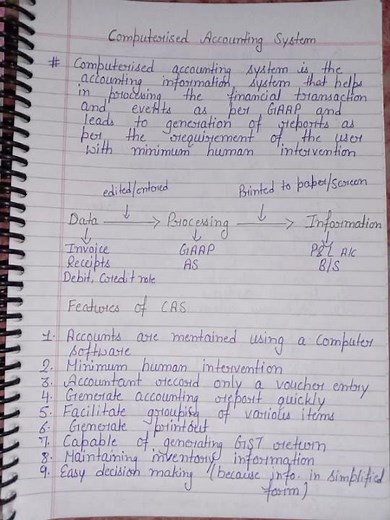 Computerised Accounting System
# Computerised accounting system is the
accounting information system that helps
in processing the financial transaction
and events as per GAAP and
leads to generation of reports as
per the requirement of the user
with minimum human intervention
edited/entered Printed to paper/screen
Data Processing Information
Invoice GAAP P&L A/c
Receipts AS B/S
Debit, Credit note
Features of CAS
1. Accounts are mentained using a computer
software
2. Minimum human intervention
3. Accountant record only a voucher entry
4. Generate accounting report quickly
5. Facilitate grouping of various items
6. Generate printout
7. Capable of generating GST return
8. Maintaining inventory information
9. Easy decision making (because info. in simplified
form)